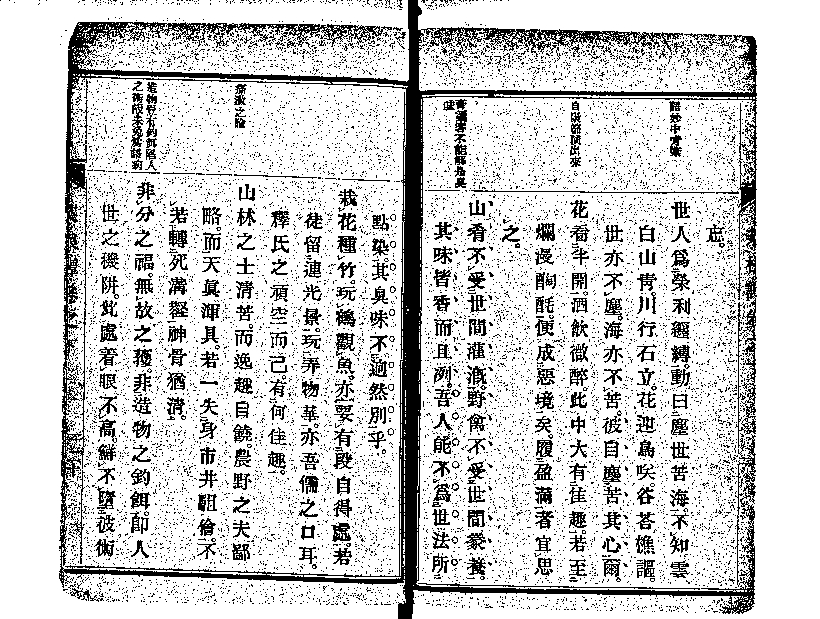 忘。
世人爲榮利纏縛。動曰塵世苦海。不知雲
白山青川行石立。花迎鳥咲谷荅樵謳。
世亦不塵。海亦不苦。彼自塵苦其心爾。
花看半開。酒飲微醉。此中大有佳趣。若至
爛漫酕醄。便成惡境矣。履盈滿者宜思
之。
山肴不受世間灌漑。野禽不受世間豢養。
其味皆香而且冽。吾人能不爲世法所
點染。其臭味不逈然別乎。
栽花種竹。玩鶴觀魚。亦要有段自得處。若
徒留連光景。玩弄物華。亦吾儒之口耳。
釋氏之頑空而已。有何佳趣。
山林之士清苦。而逸趣自饒。農野之夫鄙
略。而天眞渾具。若一失身市井駔儈。不
若轉死溝壑神骨猶清。
非分之福。無故之獲。非造物之釣餌。卽人
世之機阱。此處着眼不高。鮮不墮彼術